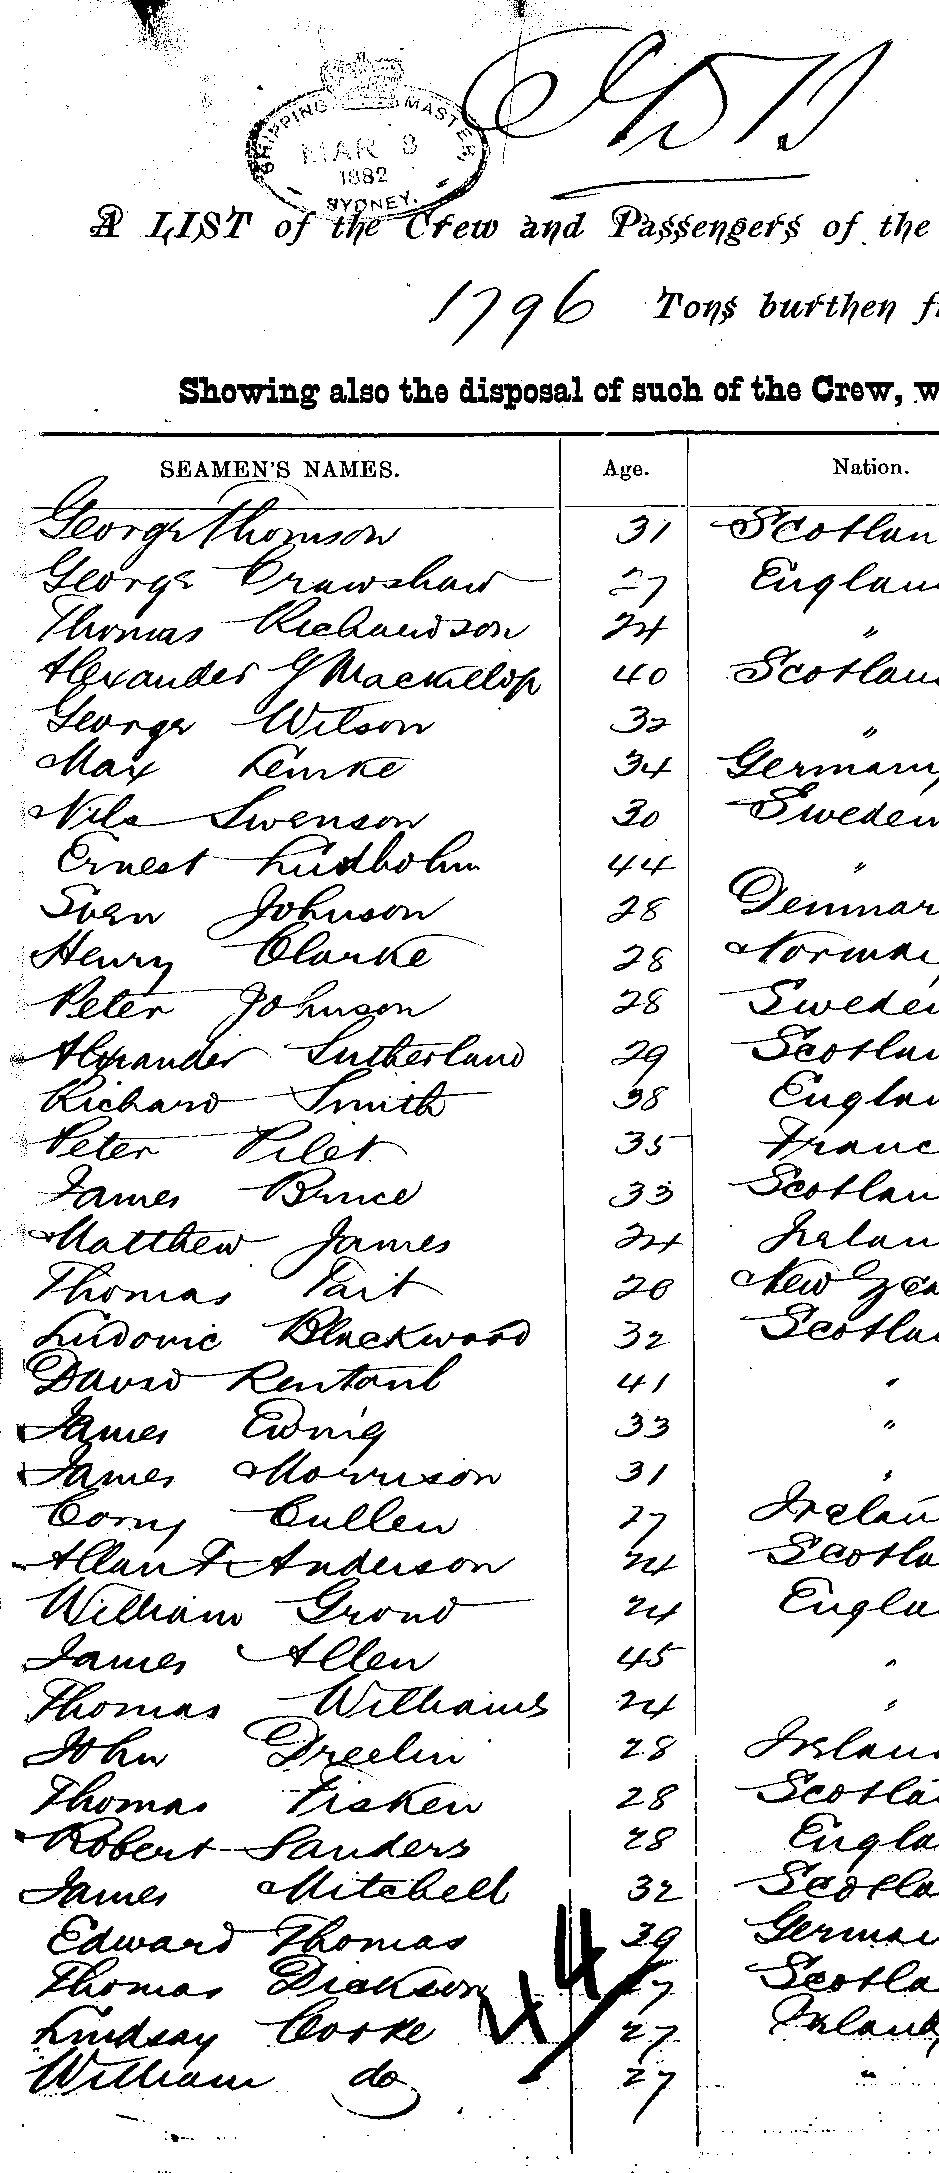 SHIPPING MASTER,
MAR 8
1882
SYDNEY.
A LIST of the Crew and Passengers of the
1796 Tons burthen f
Showing also the disposal of such of the Crew, w
SEAMEN'S NAMES. Age. Nation.
George Thomson 31 Scotlan
George Crawshaw 27 Englan
Thomas Richardson 24 "
Alexander G Mackillop 40 Scotlan
George Wilson 32 "
Max Lemke 34 Germany
Nils Swenson 30 Sweden
Ernest Lindholm 44 "
Sven Johnson 28 Denmar
Henry Clarke 28 Norway
Peter Johnson 28 Swede
Alexander Sutherland 29 Scotlan
Richard Smith 38 Englan
Peter Pilet 35 Franc
James Bruce 33 Scotlan
Matthew James 24 Irelan
Thomas Tait 20 New Zea
Ludovic Blackwood 32 Scotla
David Rentoul 41 "
James Ewing 33 "
James Morrison 31 "
Corny Cullen 27 Irelan
Allan F Anderson 24 Scotla
William Grond 24 Engla
James Allen 45 "
Thomas Williams 24 "
John Dreelin 28 Irelan
Thomas Fisken 28 Scotla
Robert Sanders 28 Engla
James Mitchell 32 Scotla
Edward Thomas 39 German
Thomas Dickson 27 Scotla
Lindsay Cooke 27 Ireland
William do 27 "
44